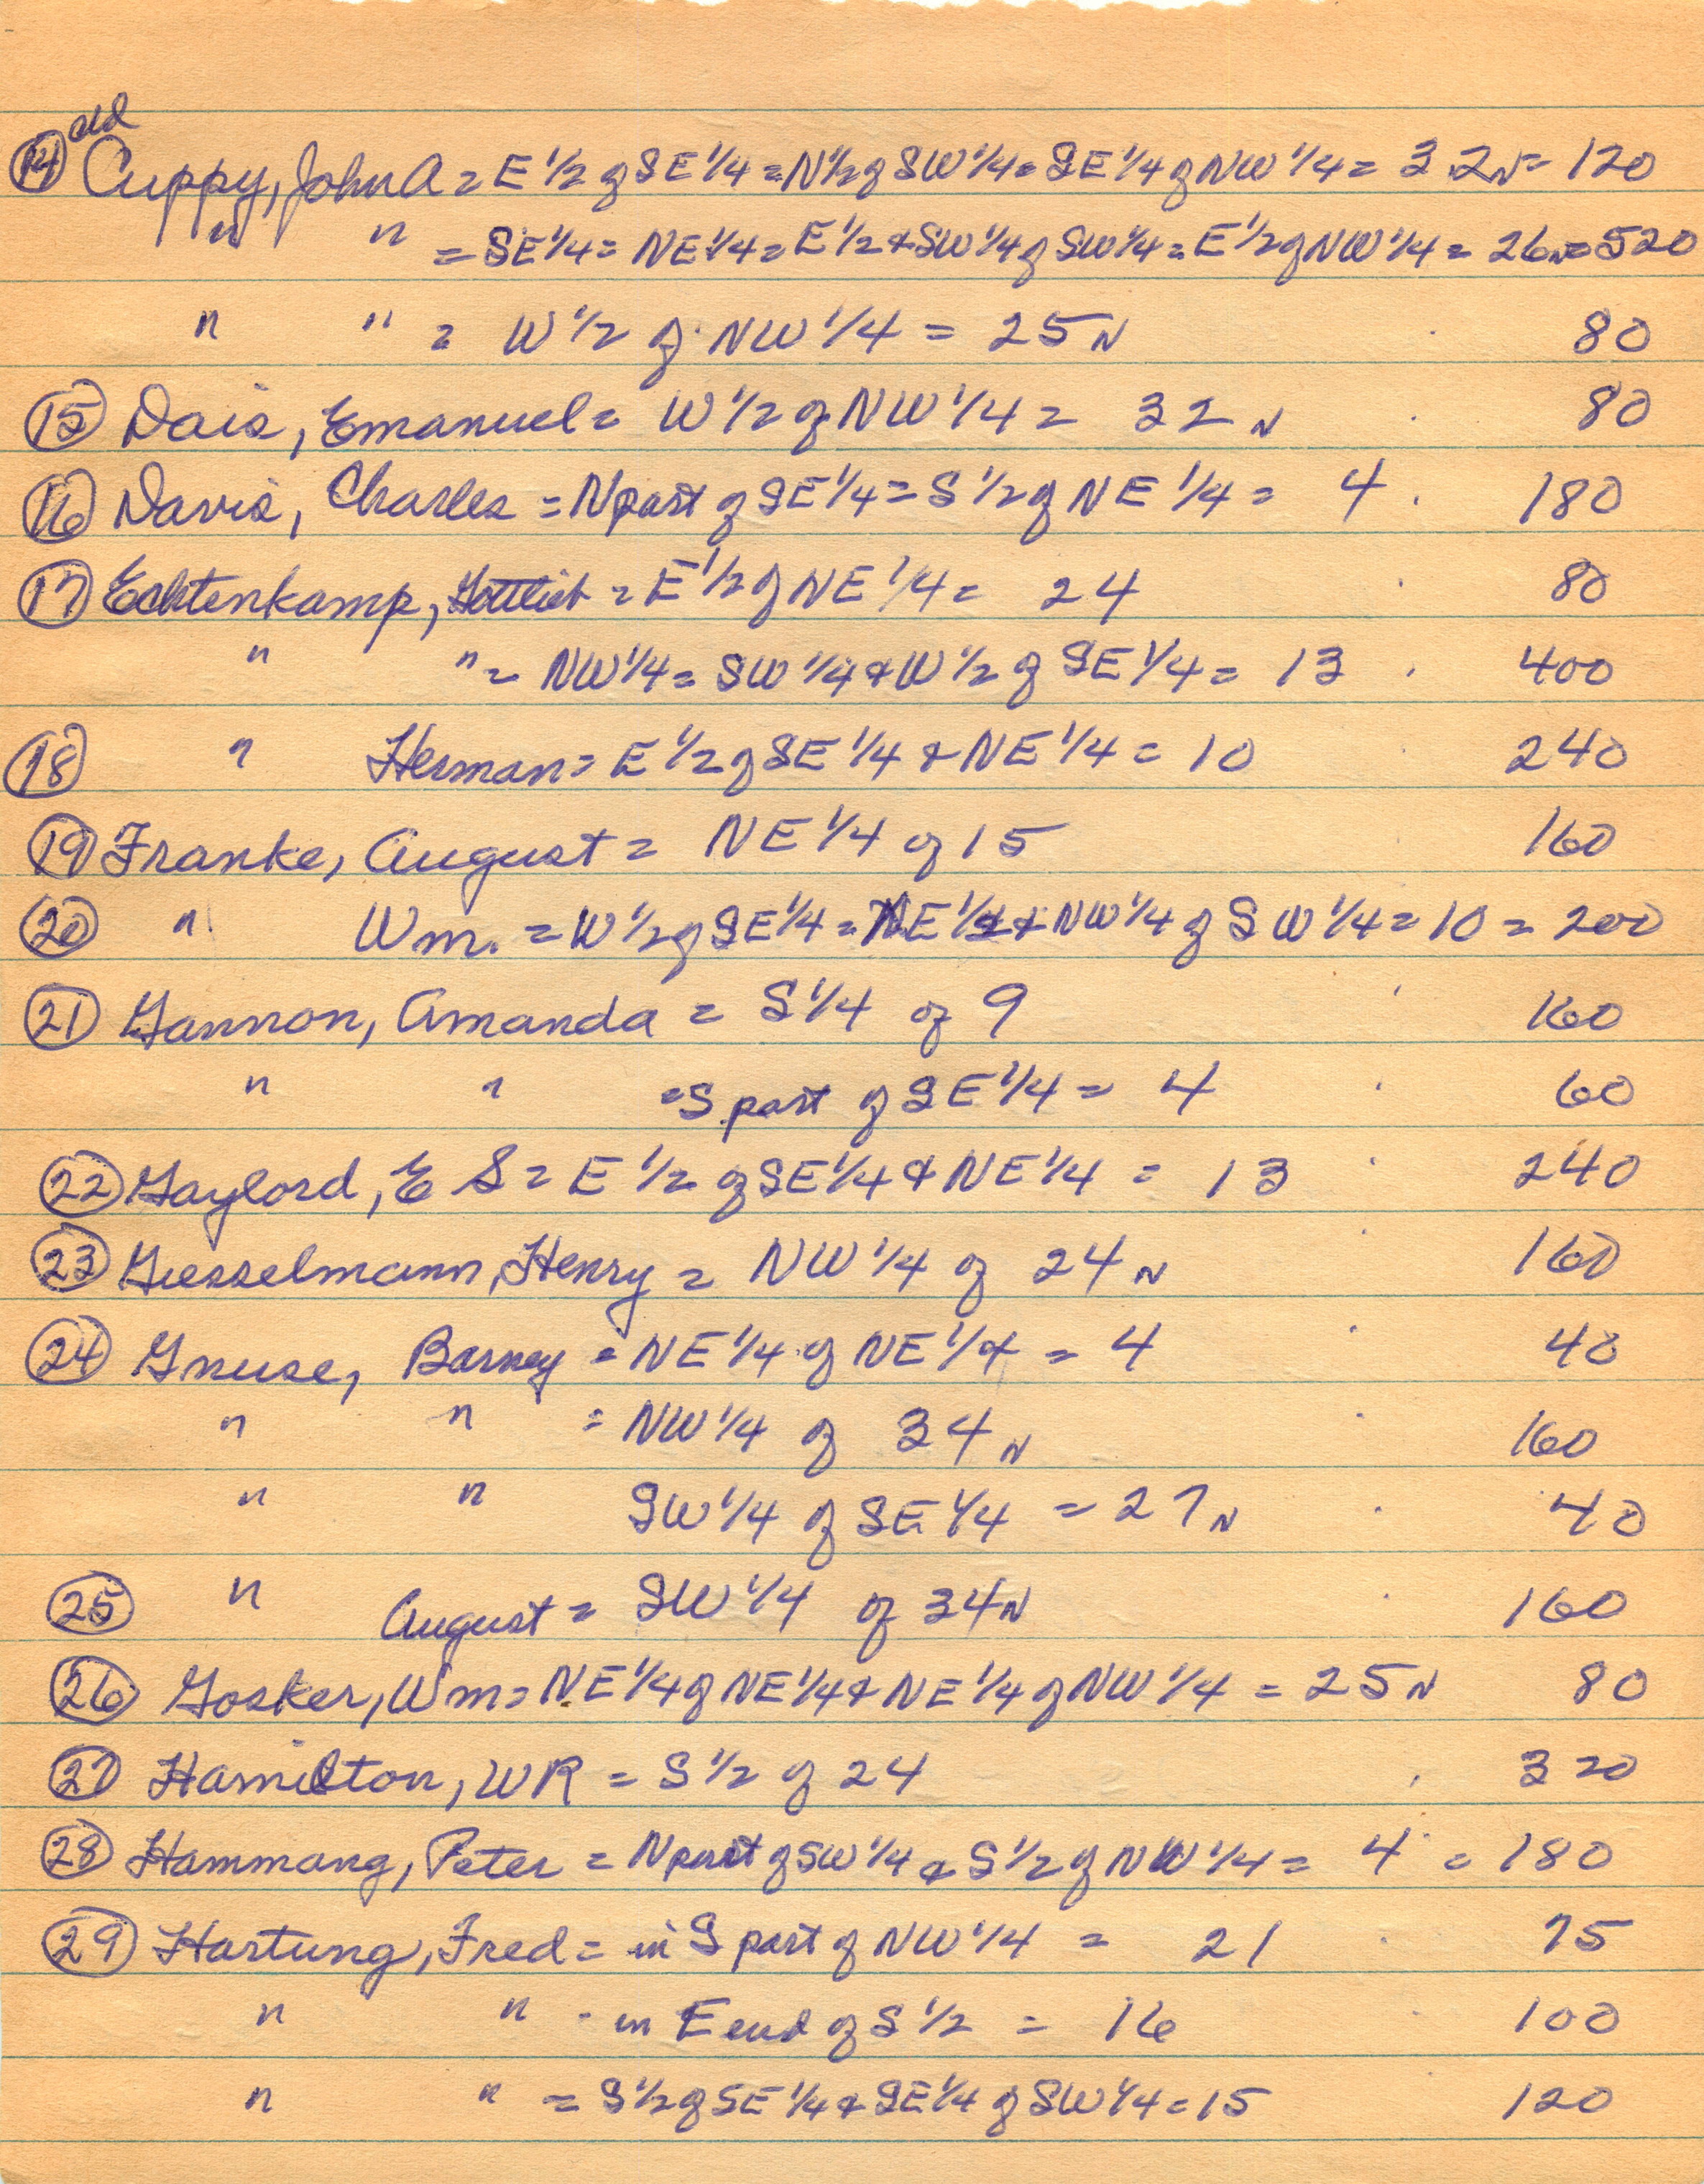 old
14 Cuppy, John A = E 1/2 of SE 1/4 = N 1/2 of SW 1/4 = SE 1/4 of NW 1/4 = 32 N = 120
" " = SE 1/4 = NE 1/4 = E 1/2 & SW 1/4 of SW 1/4 = E 1/2 of NW 1/4 = 26 N = 520
" " = W 1/2 of NW 1/4 = 25 N 80
15 Dais, Emanuel = W 1/2 of NW 1/4 = 32 N 80
16 Davis, Charles = N part of SE 1/4 = S 1/2 of NE 1/4 = 4 180
17 Echtenkamp, Gottlieb = E 1/2 of NE 1/4 = 24 80
" " = NW 1/4 = SW 1/4 & W 1/2 of SE 1/4 = 13 400
18 " Herman = E 1/2 of SE 1/4 & NE 1/4 = 10 240
19 Franke, August = NE 1/4 of 15 160
20 " Wm. = W 1/2 of SE 1/4 = NE 1/4 & NW 1/4 of SW 1/4 = 10 = 200
21 Gannon, Amanda = S 1/4 of 9 160
" " = S part of SE 1/4 = 4 60
22 Gaylord, E S = E 1/2 of SE 1/4 & NE 1/4 = 13 240
23 Giesselmann, Henry = NW 1/4 of 24 N 160
24 Gnuse, Barney = NE 1/4 of NE 1/4 = 4 40
" " = NW 1/4 of 34 N 160
" " SW 1/4 of SE 1/4 = 27 N 40
25 " August = SW 1/4 of 34 N 160
26 Gosker, Wm = NE 1/4 of NE 1/4 & NE 1/4 of NW 1/4 = 25 N 80
27 Hamilton, WR = S 1/2 of 24 320
28 Hammang, Peter = N part of SW 1/4 & S 1/2 of NW 1/4 = 4 = 180
29 Hartung, Fred = in S part of NW 1/4 = 21 75
" " - in E end of S 1/2 = 16 100
" " = S 1/2 of SE 1/4 & SE 1/4 of SW 1/4 = 15 120